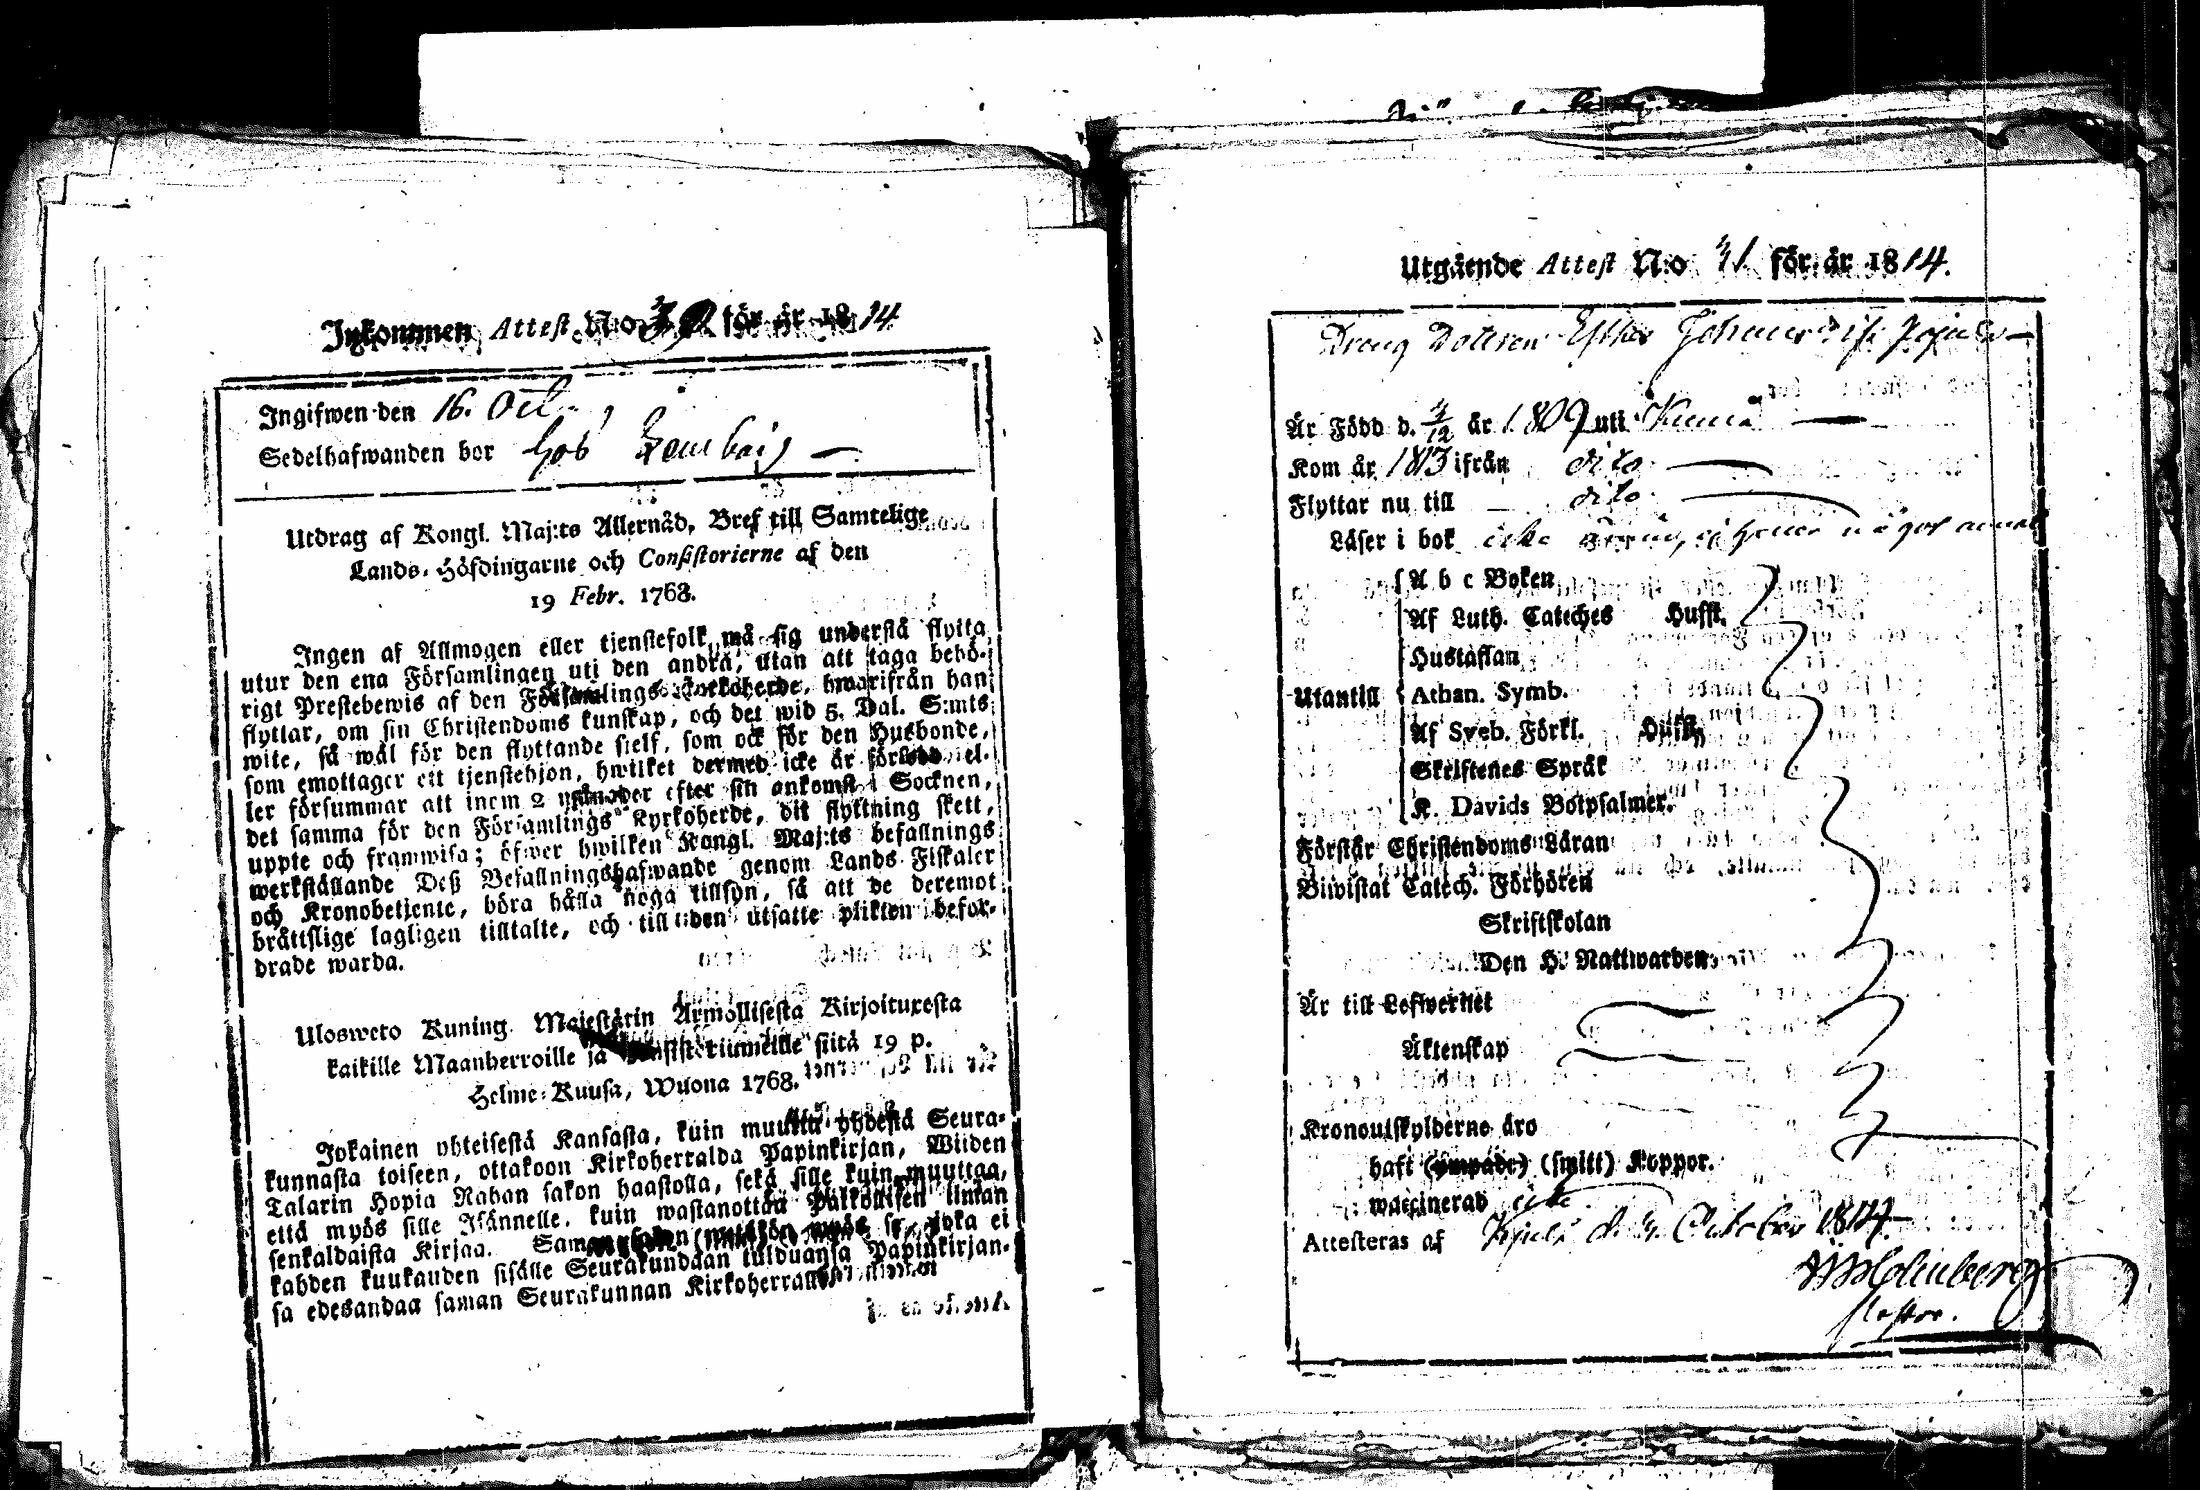 Inkommen Attest N:o 39 för år 1814
Ingifwen den 16. Oct.
Sedelhafwanden bor hos
Utdrag af Kongl. Maj:ts Allernåd. Bref till Samtelige
Lands-Höfdingarne och Consistorierne af den
19 Febr. 1768.
Ingen af Allmogen eller tjenstefolk må sig understå flytta
utur den ena Församlingen uti den andra, utan att taga behö-
rigt Prestebewis af den Församlings Kyrkoherde, hwarifrån han
flyttar, om sin Christendoms kunskap, och det wid 5. Dal. S:mts
wite, så wäl för den flyttande sielf, som ock för den Husbonde,
som emottager ett tjenstehjon, hwilket dermed icke är försedd el-
ler försummar att inem 2 månader efter sin ankomst i Socknen,
det samma för den Församlings Kyrkoherde, dit flyttning skett,
uppte och framwisa; öfwer hwilken Kongl. Maj:ts befallnings
werkställande Deß Befallningshafwande genom Lands Fiskaler
och Kronobetjente, böra hålla noga tillsyn, så att de deremot
bråttslige lagligen tilltalte, och till den utsatte plikten befor-
drade warda.
Ulosweto Kuning. Majestätin Armollisesta Kirjoituxesta
kaikille Maanherroille ja Konsistoriumeille siitä 19 p.
Helme-Kuusa, Wuona 1768.
Jokainen yhteisestä Kansasta, kuin muutta yhdestä Seura-
kunnasta toiseen, ottakoon Kirkoherralda Papinkirjan, Wiiden
Talarin Hopia Rahan sakon haastolla, sekä sille kuin muuttaa,
että myös sille Isännelle, kuin wastanottaa Palkollisen ilman
senkaldaista Kirjaa. Saman sakon myös se, joka ei
kahden kuukauden sisälle Seurakundaan tulduansa Papinkirjan-
sa edesandaa saman Seurakunnan Kirkoherralle
Utgående Attest N:o 31 för år 1814.
Dreng Dotteren Esther
Är Född d. 4/12 år 1809 uti Kumå
Kom år 1813 ifrån dito
Flyttar nu till dito
Läser i bok icke något annat
A b c Boken
Af Luth. Cateches Husfl.
Hustaflan
Utantill Athan. Symb.
Af Sveb. Förkl. Husfl.
Skriftenes Språk
K. Davids Botpsalmer.
Förstår Christendoms Läran
Biwistat Catech. Förhören
Skriftskolan
Den H. Nattwarden
Är till Lefwernet
Äktenskap
Kronoutskylderne äro
haft (ympade) (smitt) Koppor.
waccinerad icke
Attesteras af October 1814
Pastor.